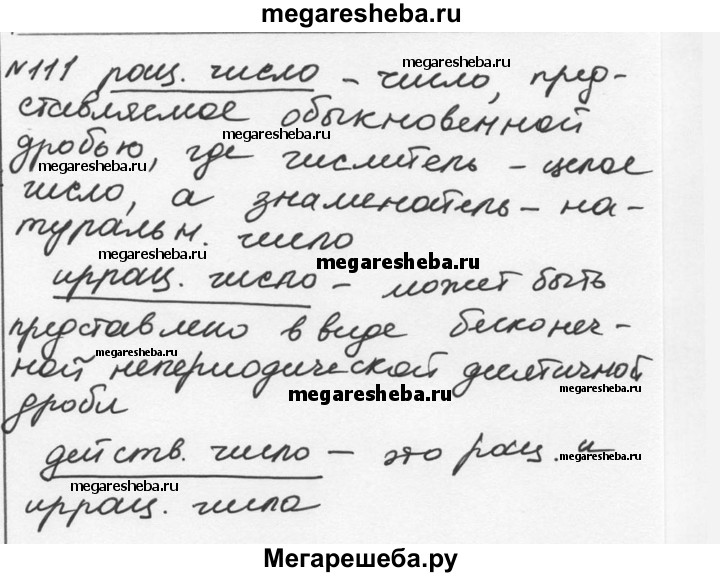 megaresheba.ru
№111 рац. число – число, пред-
ставляемое обыкновенной
megaresheba.ru
дробью, где числитель – целое
megaresheba.ru
число, а знаменатель – на-
туральн. число
megaresheba.ru
megaresheba.ru
иррац. число – может быть
представлено в виде бесконеч-
megaresheba.ru
ной непериодической десятичной
megaresheba.ru
megaresheba.ru
дроби
действ. число – это рац. и
megaresheba.ru
megaresheba.ru
иррац. числа
Мегарешеба.ру